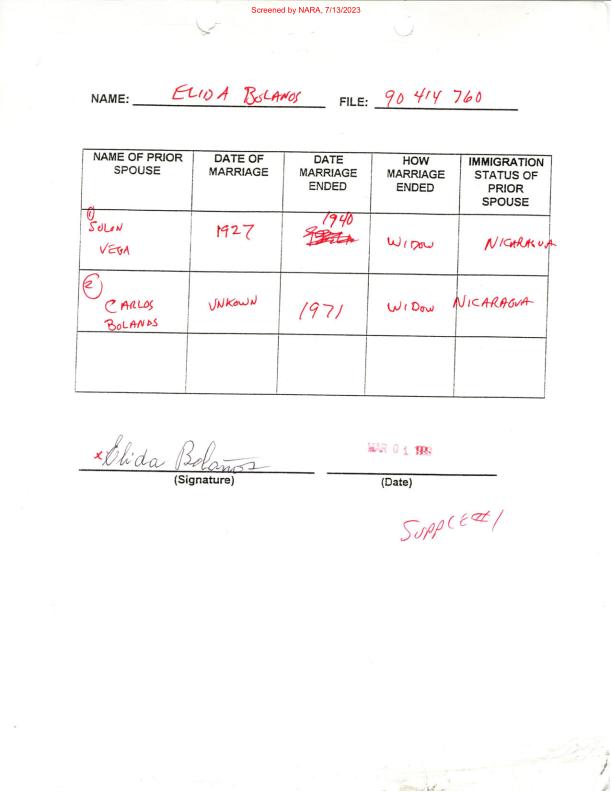 Screened by NARA, 7/13/2023
NAME: ELIDA BOLANOS FILE: 90 414 760
NAME OF PRIOR SPOUSE
DATE OF MARRIAGE
DATE MARRIAGE ENDED
HOW MARRIAGE ENDED
IMMIGRATION STATUS OF PRIOR SPOUSE
1 SOLON VEGA
1927
1940
WIDOW
NICARAGUA
2 CARLOS BOLANOS
UNKOWN
1971
WIDOW
NICARAGUA
x Elida Bolaños
MAR 01
(Signature) (Date)
SUPPLE #1